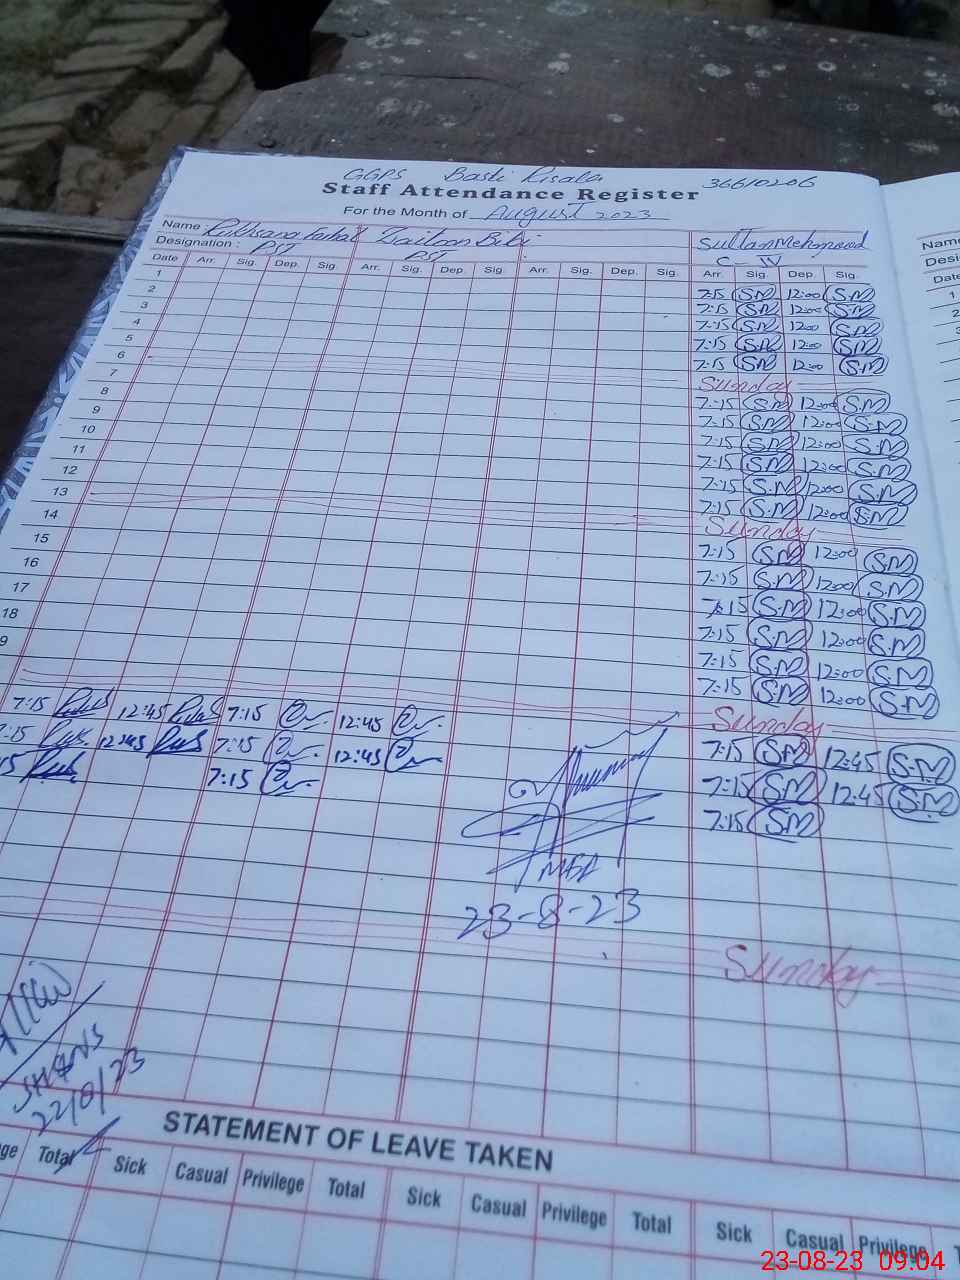 GGPS Basti Risala 36610206
Staff Attendance Register
For the Month of August 2023
Name Rukhsana Zaitoon Bibi Sultan Mehmood
Designation : PST PST C-IV
Date Arr. Sig. Dep. Sig. Arr. Sig. Dep. Sig. Arr. Sig. Dep. Sig. Arr. Sig. Dep. Sig.
1
2 7:15 S.M 12:00 S.M
3 7:15 S.M 12:00 S.M
4 7:15 S.M 12:00 S.M
5 7:15 S.M 12:00 S.M
7:15 S.M 12:00 S.M
6 Sunday
7 7:15 S.M 12:00 S.M
8 7:15 S.M 12:00 S.M
9 7:15 S.M 12:00 S.M
10 7:15 S.M 12:00 S.M
11 7:15 S.M 12:00 S.M
12 7:15 S.M 12:00 S.M
13 Sunday
14 7:15 S.M 12:00 S.M
15 7:15 S.M 12:00 S.M
16 7:15 S.M 12:00 S.M
17 7:15 S.M 12:00 S.M
18 7:15 S.M 12:00 S.M
9 7:15 S.M 12:00 S.M
Sunday
7:15 12:45 7:15 12:45 7:15 S.M 12:45 S.M
7:15 12:45 7:15 12:45 7:15 S.M 12:45 S.M
15 7:15 7:15 S.M
MEA
23-8-23
Sunday
22/8/23
STATEMENT OF LEAVE TAKEN
ge Total Sick Casual Privilege Total Sick Casual Privilege Total Sick Casual Privilege T
Name
Desi
Date
1
2
3
23-08-23 09:04